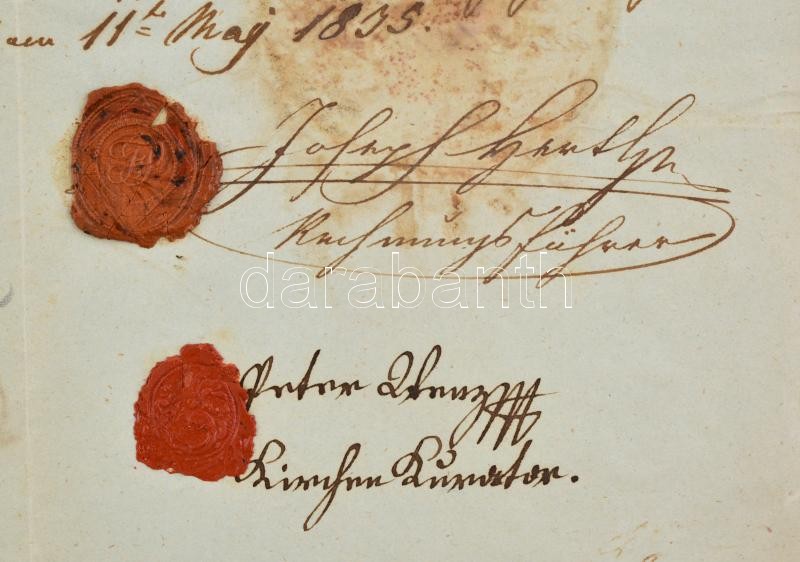 am 11t Maÿ 1835.
Joseph Hertha
Rechnungsführer
darabanth
Peter Wenz
Kirchen Kurator.